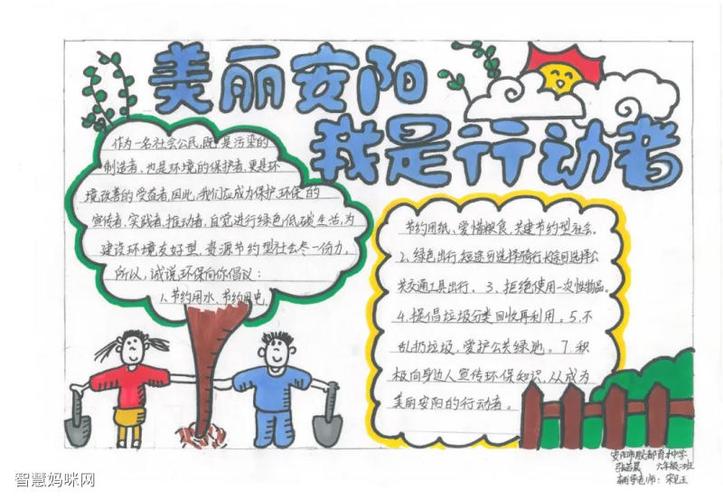 美丽安阳
我是行动者
作为一名社会公民,既是污染的
制造者,也是环境的保护者,更是环
境改善的受益者,因此,我们应成为保护环保的
宣传者,实践者,推动者,自觉进行绿色低碳生活,为
建设环境友好型、资源节约型社会尽一份力,
所以,诚说环保向你倡议:
1、节约用水、节约用电、
节约用纸、爱惜粮食、共建节约型社会。
2、绿色出行,短途可选择骑行,长途可选择公
共交通工具出行。3、拒绝使用一次性物品。
4、提倡垃圾分类回收再利用。5、不
乱扔垃圾,爱护公共绿地。7.积
极向身边人宣传环保知识,从成为
美丽安阳的行动者。
安阳市殷都育才中学
六年级 班
辅导老师:宋
智慧妈咪网